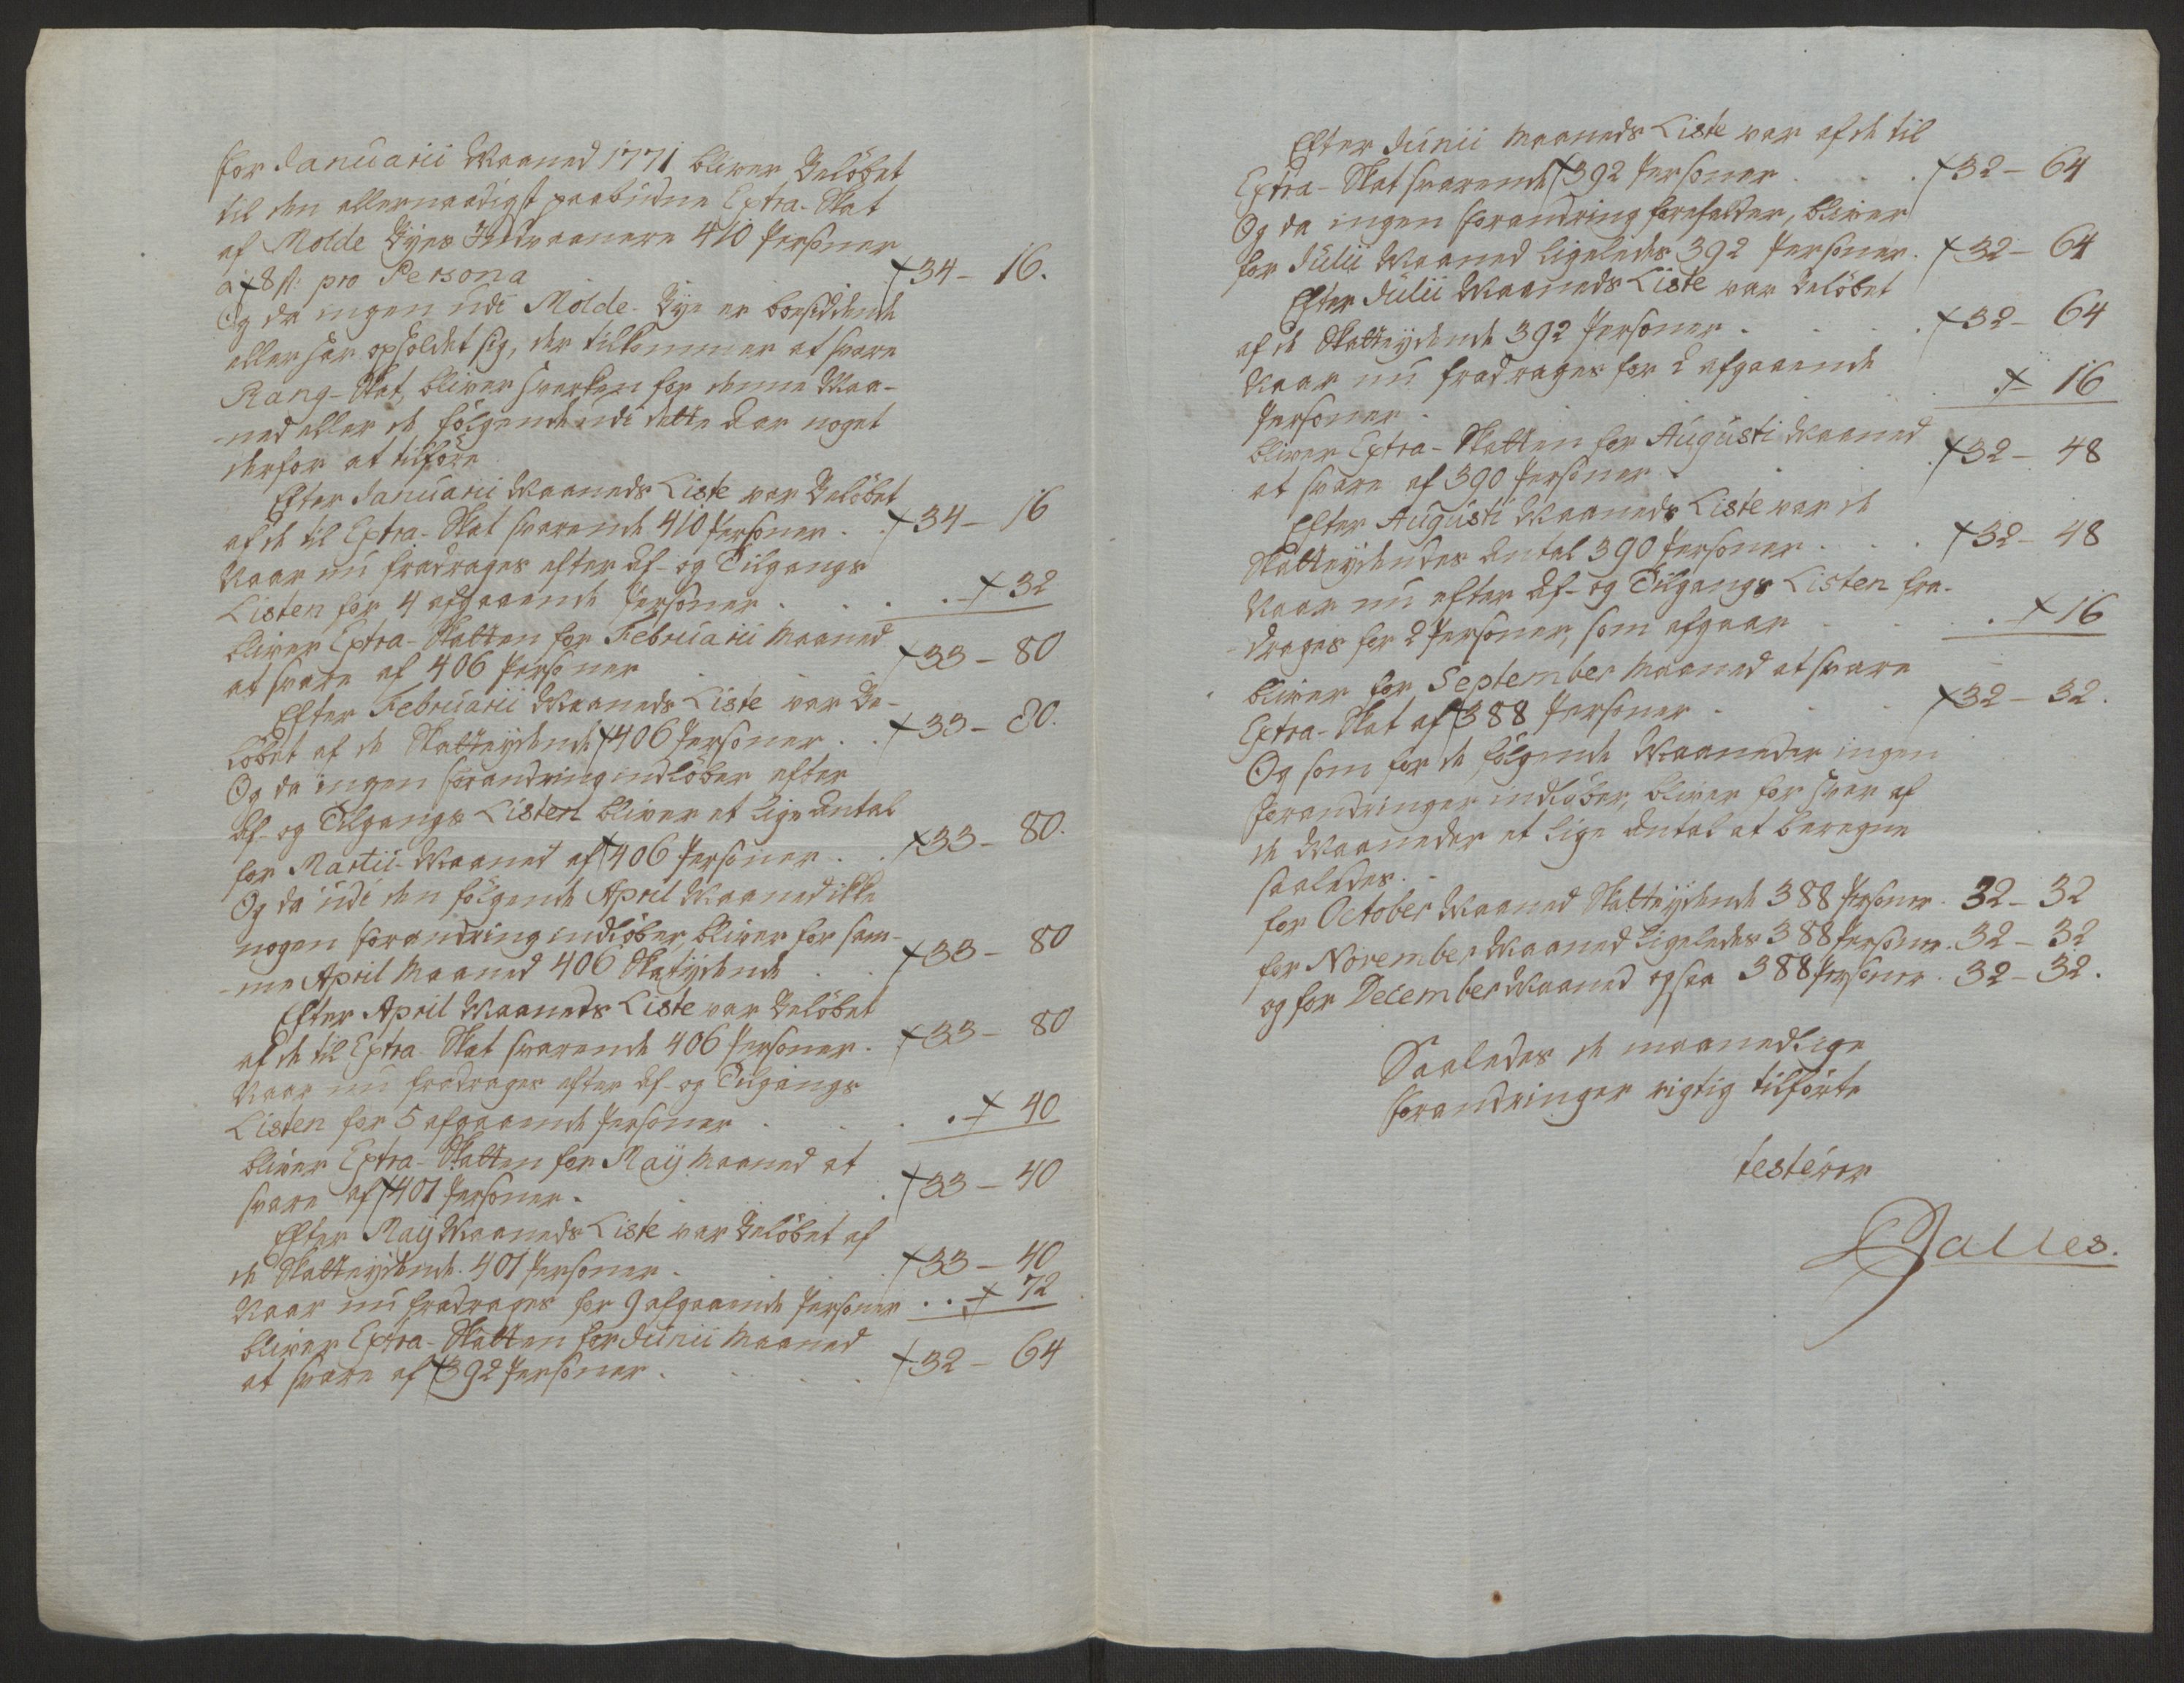 for Januarii Maaned 1771 bliver Beløbet
til den allernaadigst paabudne Extra-Skat
af Molde Byes Indvaanere 410 Personer
a 8 ſ: pro Persona 34 - 16.
Og da ingen udi Molde-Bye er boesiddende
eller har opholdet sig, der tilkommer at svare
Rang-Skat, bliver hverken for denne Maa-
-ned eller de følgende udi dette Aar noget
derfor at tilføre
Efter Januarii Maaneds Liste var Beløbet
af de til Extra-Skat svarende 410 Personer . . 34 - 16
Naar nu fradrages efter Af- og Tilgangs
Listen for 4 afgaaende Personer . . . . - 32
bliver Extra-Skatten for Februarii Maaned
at svare af 406 Personer 33 - 80
Efter Februarii Maaneds Liste var Be-
løbet af de Skatteydende 406 Personer . . 33 - 80.
Og da ingen forandring indløber efter
Af- og Tilgangs Listen bliver et lige Antal
for Martii Maaned af 406 Personer . . 33 - 80.
Og da udi den følgende April Maaned ikke
nogen forandring indløber, bliver for sam-
-me April Maaned 406 Skatydende . . 33 - 80
Efter April Maaneds Liste var Beløbet
af de til Extra-Skat svarende 406 Personer . 33 - 80
Naar nu fradrages efter Af- og Tilgangs
Listen for 5 afgaaende Personer . . . . - 40
bliver Extra-Skatten for Maij Maaned at
svare af 401 Personer . . . . 33 - 40
Efter Maij Maaneds Liste var Beløbet af
de Skatteydende 401 Personer . . . 33 - 40
Naar nu fradrages for 9 afgaaende Personer . . - 72
bliver Extra-Skatten for Junii Maaned
at svare af 392 Personer . . . . 32 - 64
Efter Junii Maaneds Liste var af de til
Extra-Skat svarende 392 Personer . . . 32 - 64
Og da ingen forandring forefalder, bliver
for Julii Maaned ligeledes 392 Personer . 32 - 64
Efter Julii Maaneds Liste var Beløbet
af de Skatteydende 392 Personer . . . . 32 - 64
Naar nu fradrages for 2 afgaaende
Personer . . . . . - 16
bliver Extra-Skatten for Augusti Maaned
at svare af 390 Personer . . . 32 - 48
Efter Augusti Maaneds Liste var de
Skatteydendes Antal 390 Personer . . . 32 - 48
Naar nu efter Af- og Tilgangs Listen fra-
-drages for 2 Personer, som afgaar . . . - 16
bliver for September Maaned at svare
Extra-Skat af 388 Personer . . . 32 - 32.
Og som for de følgende Maaneder ingen
forandringer indløber, bliver for hver af
de Maaneder et lige Antal at beregne
saaledes.
for October Maaned Skatteydende 388 Personer . 32 - 32
for November Maaned ligeledes 388 Personer . 32 - 32
og for December Maaned ogsaa 388 Personer . 32 - 32.
Saaledes de maanedlige
forandringer rigtig tilførte
testerer